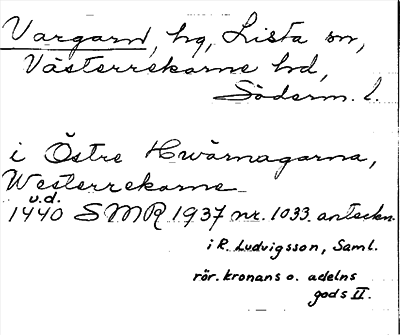 Vargarn, hg, Lista sn,
Västerrekarne hd,
Söderm. l.
i Östre Hwärnagarna,
Westerrekarne
u.d.
1440 SMR 1937 nr. 1033. anteckn.
i R. Ludvigsson, Saml.
rör. kronans o. adelns
gods II.